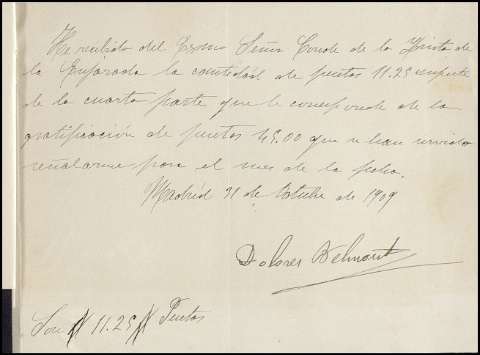 He recibido del Excmo Señor Conde de la Quinta de
la Enjarada la cantidad de pesetas 11.25 importe
de la cuarta parte que le corresponde de la
gratificación de pesetas 45.00 que se han servido
señalarme para el mes de la fecha.
Madrid 31 de Octubre de 1909
Dolores Belmont
Son # 11.25 # Pesetas